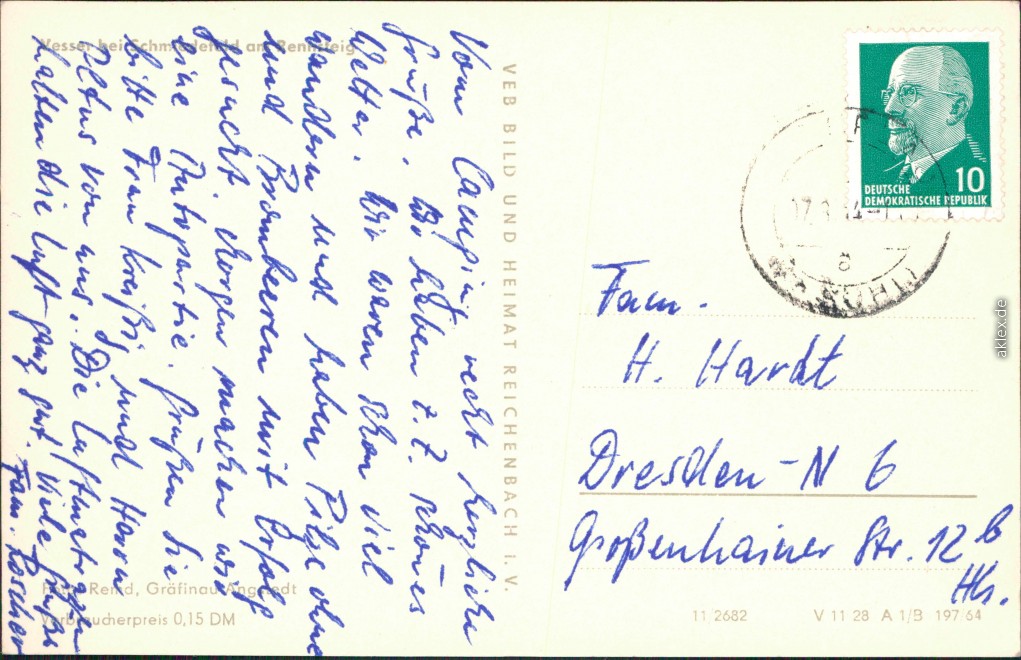 Vesser bei Schmiedefeld am Rennsteig
Vom Camping recht herzliche
Grüße. Wir haben z. Z. schönes
Wetter. Wir waren schon viel
wandern und haben Pilze ohne
und Brombeeren mit Erfolg
gesucht. Morgen machen wir
eine Autopartie. Grüßen Sie
bitte Frau Kreißig und Herrn
von uns. Die Luftmatratzen
halten die Luft ganz gut. Viele Grüße
Fam.
Foto: Remd, Gräfinau-Angstedt
Verbraucherpreis 0,15 DM
VEB BILD UND HEIMAT REICHENBACH I. V.
DEUTSCHE
DEMOKRATISCHE REPUBLIK
10
a
Fam.
H. Hardt
Dresden-N 6
Großenhainer Str. 12 b
Hh.
11 2682
V 11 28 A 1/B 197 64
aklex.de